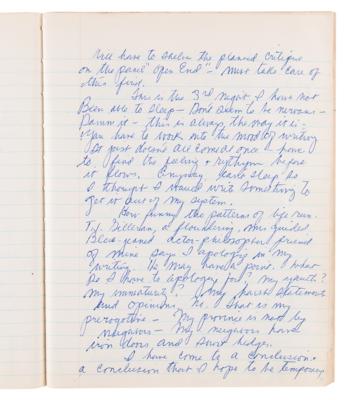 Will have to shelve the planned critique
on the panel "open End" - must take care of
this first.
This is the 3rd night I have not
Been able to sleep - Dont seem to be nervous -
Damm it - this is always the way it is -
You have to work into the mood of writing
It just doesnt all come at once I have
to find the feeling + rythym before
it flows. Anyway, cant sleep so
I thought I would write something to
get it out of my system.
How funny the patterns of life run.
T.J. a floundering, mis-guided,
actor-philosopher friend
of mine says I apologize in my
writing. He may have a point. What
do I have to apology for? my youth?
my immaturity? my harsh statements
and opinions, no. That is my
prerogative - My province is not my
neighbors - My neighbors have
iron doors, and hedges.
I have come to a conclusion.
a conclusion that I hope to be temporary